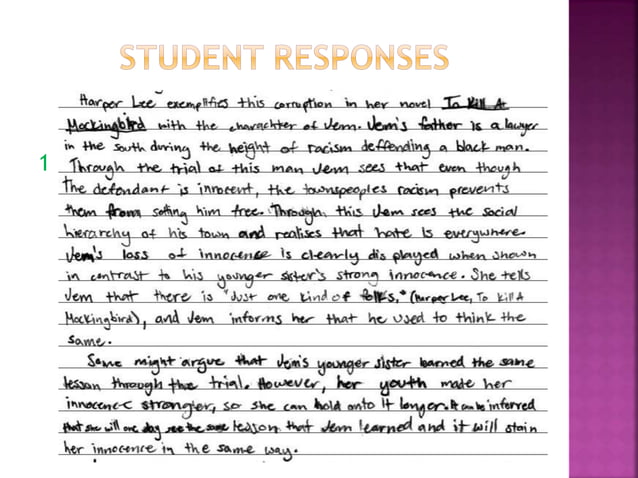 STUDENT RESPONSES
Harper Lee exemplifies this corruption in her novel To Kill A
Mockingbird with the charachter of Jem. Jem's father is a lawyer
in the south during the height of racism deffending a black man.
1
Through the trial of this man Jem sees that even though
the defendant is innocent, the townspeoples racism prevents
them from setting him free. Through this Jem sees the social
hierarchy of his town and realises that hate is everywhere.
Jem's loss of innocence is clearly displayed when shown
in contrast to his younger sister's strong innocence. She tells
Jem that there is "Just one kind of folks," (Harper Lee, To Kill A
Mockingbird), and Jem informs her that he used to think the
same.
Some might argue that Jem's younger sister learned the same
lesson through the trial. However, her youth made her
innocence strongler, so she can hold onto it longer. It can be inferred
that she will one day see the same lesson that Jem learned and it will stain
her innocence in the same way.